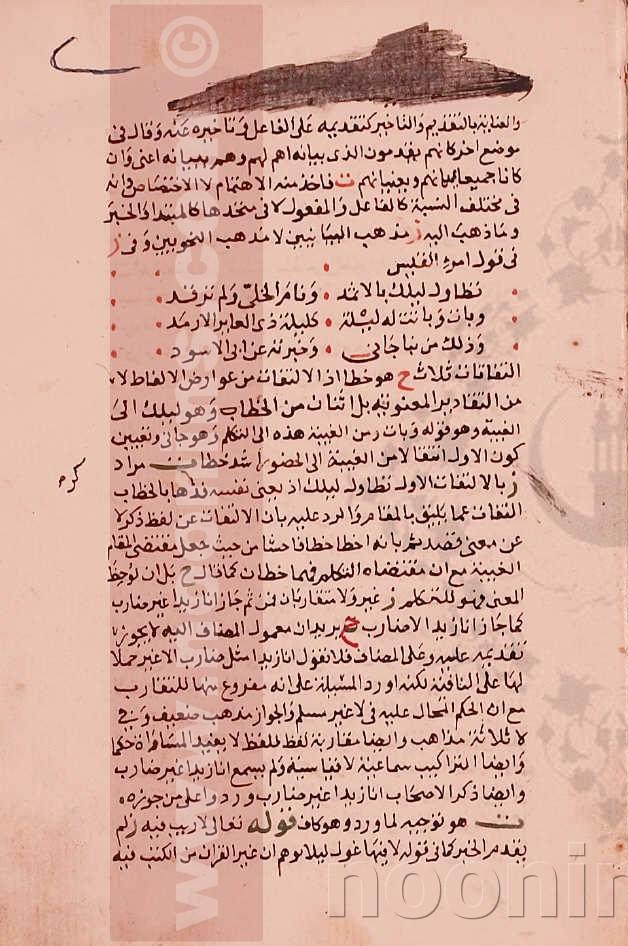 والعناية بالتقديم والتاخير كتقديمه على الفاعل وتاخيره عنه وقال فى
موضع اخر كانهم يقدمون الذى بيانه اهم لهم وهم ببيانه اعنى وان
كانا جميعا يهمانهم ويعنيانهم ت فاخذ منه الاهتمام لا الاختصاص فى انه
فى مختلف النسبة كالفاعل والمفعول لا فى متحدها كالمبتدا والخبر
وما ذهب اليه ز مذهب البيانيين لا مذهب النحويين وفى ز
فى قول امرء القيس
تطاول ليلك بالاثمد ونام الخلى ولم ترقد
وبات وباتت له ليلة كليلة ذى العاير الارمد
وذلك من نبا جانى وخبرته عن ابى الاسود
التفاتات ثلاث ح هو خطا اذ الالتفات من عوارض الالفاظ لا
من التقادير المعنوية بل اثنان من الخطاب وهو ليلك الى
الغيبة وهو قوله وبات ومن الغيبة هذه الى التكلم وهو جانى وتعيين
كون الاول انتقالا من الغيبة الى الحضور اشد خطا ت مراد
ز بالالتفات الاول تطاول ليلك اذ يعنى نفسه فذهابه بالخطاب
التفات عما يليق بالمقام والرد عليه بان الالتفات عن لفظ ذكر لا
عن معنى قصد ثم بانه اخطا خطا فاحشا من حيث جعل مقتضى المقام
الغيبة مع ان مقتضاه التكلم فهما خطان كما قال ح بل ان لوحظ
المعنى فهو للتكلم ز غير ولا متقاربان فمن ثم جاز انا زيدا غير ضارب
كما جاز انا زيدا لا ضارب ح يريد ان معمول المضاف اليه لا يجوز
تقديمه عليه وعلى المضاف فلا تقول انا زيدا مثل ضارب الا غير حملا
لها على النافية لكنه اورد المسئلة على انه مفروغ منها للتقارب
مع ان الحكم المحال عليه فى لا غير مسلم والجواز مذهب ضعيف وفى
لا ثلاثة مذاهب وايضا مقاربة لفظ للفظ لا يفيد المساواة حكما
وايضا التراكيب سماعية لا قياسية ولم يسمع انا زيدا غير ضارب
وايضا ذكر الاصحاب انا زيدا غير ضارب وردوا على من جوزه
ت هو توجيه لما ورد وهو كاف قوله تعالى لا ريب فيه ز لم
يقدم الخبر كما فى قوله لا فيها غول ليلا يوهم ان غير القران من الكتب فيه
كرم
©
www.
noonin